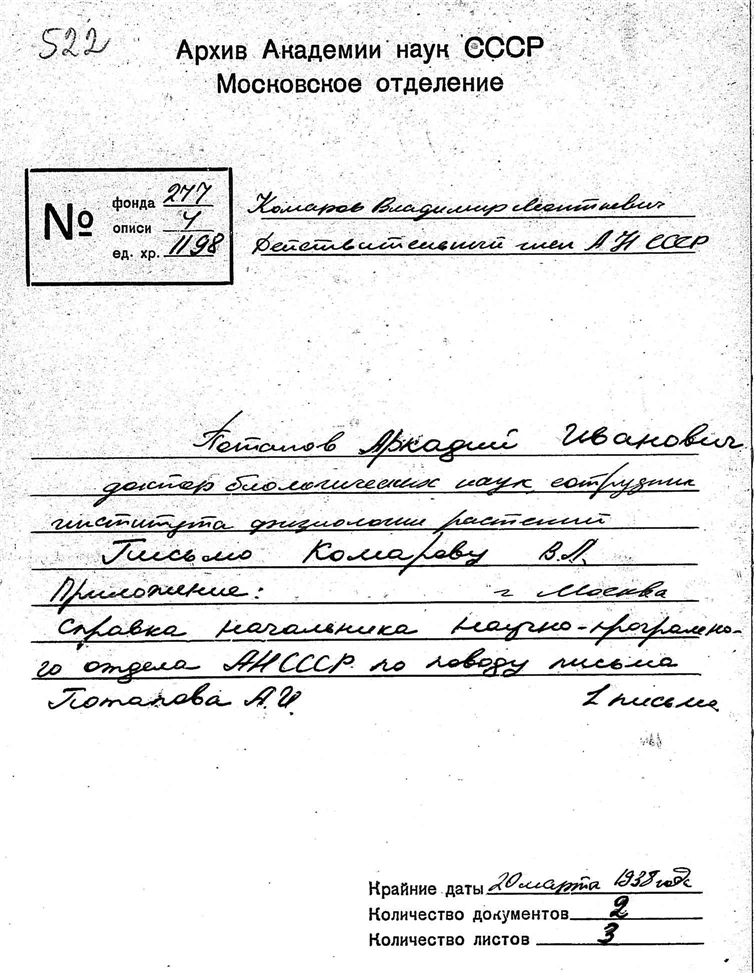 522
Архив Академии наук СССР
Московское отделение
№
фонда 277
описи 4
ед. хр. 1198
Комаров Владимир Леонтьевич
Действительный член АН СССР
Потапов Аркадий Иванович
доктор биологических наук, сотрудник
института физиологии растений
Письмо Комарову В.Л.
Приложение: г Москва
Справка начальника научно-програмно-
го отдела АН СССР по поводу письма
Потапова А.И. 1 письма
Крайние даты 20 марта 1938 года
Количество документов 2
Количество листов 3